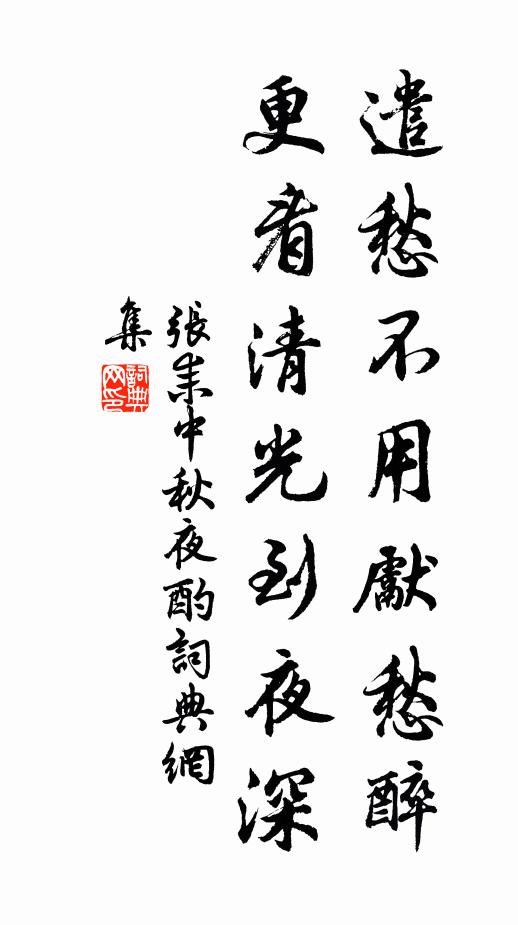 遣愁不用獻愁醉
更看清光到夜深
張耒中秋夜酌詞典網
集
詞典
网印